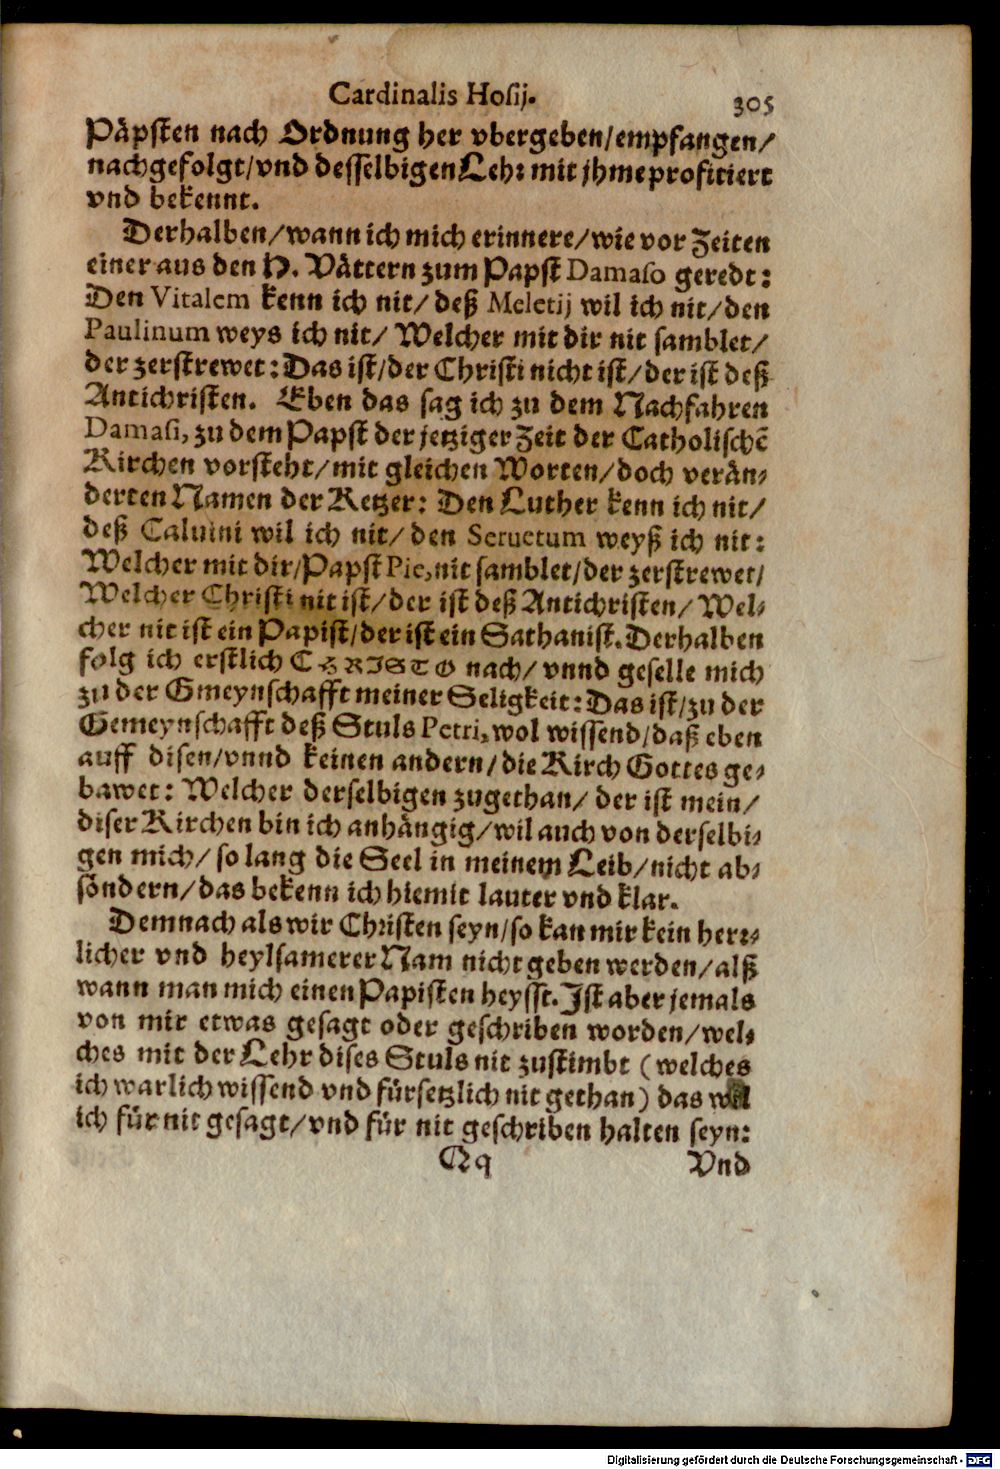 Cardinalis Hosij. 305
Päpsten nach Ordnung her vbergeben/empfangen/
nachgefolgt/vnd desselbigen Lehr mit jhme profitiert
vnd bekennt.
Derhalben/wann ich mich erinnere/wie vor Zeiten
einer aus den H. Vättern zum Papst Damaso geredt:
Den Vitalem kenn ich nit/deß Meletij wil ich nit/den
Paulinum weys ich nit/ Welcher mit dir nit samblet/
der zerstrewet: Das ist/der Christi nicht ist/der ist deß
Antichristen. Eben das sag ich zu dem Nachfahren
Damasi, zu dem Papst der jetziger Zeit der Catholischẽ
Kirchen vorsteht/mit gleichen Worten/doch verän-
derten Namen der Ketzer: Den Luther kenn ich nit/
deß Caluini wil ich nit/ den Seruetum weyß ich nit:
Welcher mit dir/Papst Pie, nit samblet/der zerstrewet/
Welcher Christi nit ist/der ist deß Antichristen/ Wel-
cher nit ist ein Papist/der ist ein Sathanist. Derhalben
folg ich erstlich CHRISTO nach/ vnnd geselle mich
zu der Gmeynschafft meiner Seligkeit: Das ist/zu der
Gemeynschafft deß Stuls Petri, wol wissend/daß eben
auff disen/vnnd keinen andern/die Kirch Gottes ge-
bawet: Welcher derselbigen zugethan/ der ist mein/
diser Kirchen bin ich anhängig/wil auch von derselbi-
gen mich/ so lang die Seel in meinem Leib/nicht ab-
söndern/das bekenn ich hiemit lauter vnd klar.
Demnach als wir Christen seyn/so kan mir kein herr-
licher vnd heylsamerer Nam nicht geben werden/alß
wann man mich einen Papisten heysst. Ist aber jemals
von mir etwas gesagt oder geschriben worden/wel-
ches mit der Lehr dises Stuls nit zustimbt (welches
ich warlich wissend vnd fürsetzlich nit gethan) das wil
ich für nit gesagt/vnd für nit geschriben halten seyn:
Qq Vnd
Digitalisierung gefördert durch die Deutsche Forschungsgemeinschaft - DFG